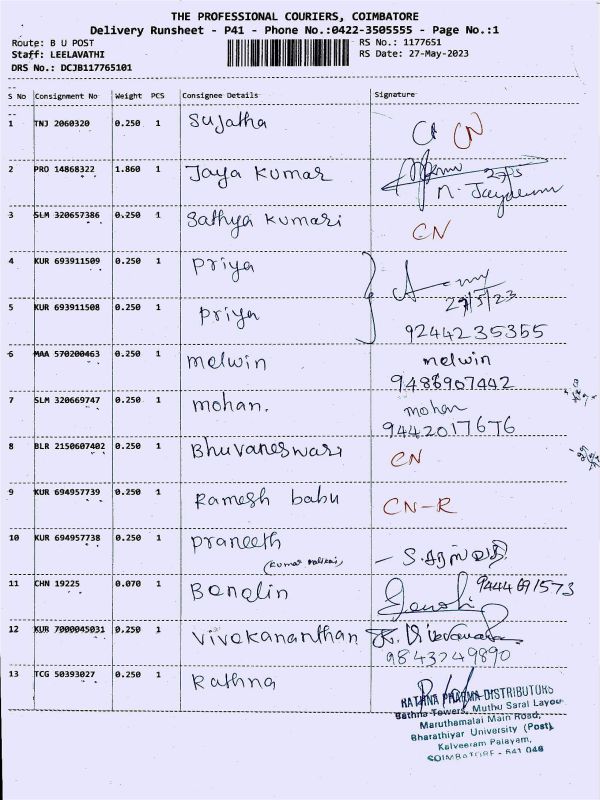 THE PROFESSIONAL COURIERS, COIMBATORE
Delivery Runsheet - P41 - Phone No.:0422-3505555 - Page No.:1
Route: B U POST
RS No.: 1177651
Staff: LEELAVATHI
RS Date: 27-May-2023
DRS No.: DCJB117765101
S No Consignment No Weight PCS Consignee Details Signature
1 TNJ 2060320 0.250 1 Sujatha CN
2 PRO 14868322 1.860 1 Jaya Kumar
3 SLM 320657386 0.250 1 Sathya Kumari CN
4 KUR 693911509 0.250 1 Priya
27/5/23
5 KUR 693911508 0.250 1 Priya
9244235355
6 MAA 570200463 0.250 1 melwin melwin
9486907442
7 SLM 320669747 0.250 1 mohan. mohan
9442017676
8 BLR 2150607402 0.250 1 Bhuvaneswari CN
9 KUR 694957739 0.250 1 Ramesh babu CN-R
10 KUR 694957738 0.250 1 Praneeth
11 CHN 19225 0.070 1 9444691573
12 KUR 7000045031 0.250 1 Vivekananthan
9843749890
13 TCG 50393027 0.250 1 Rathna
RATHNA PHARMA DISTRIBUTORS
Rathna Towers, Muthu Saral Layout
Maruthamalai Main Road,
Bharathiyar University (Post),
Kalveeram Palayam,
COIMBATORE - 641 046